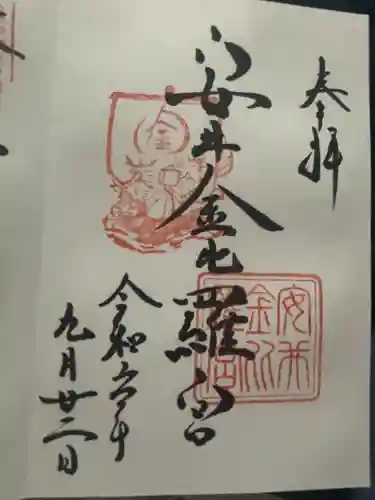 奉拝
安井金比羅宮
令和六年
九月廿二日
安井
金比
羅宮